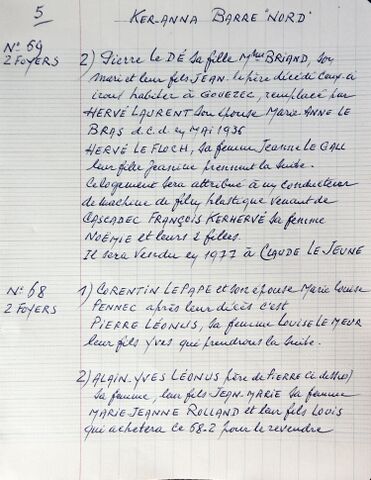 5
KER-ANNA BARRE "NORD"
N° 69
2 FOYERS
2) Pierre le DÉ sa fille Mme BRIAND, son
mari et leur fils JEAN. le père décédé ceux-ci
iront habiter à GOUEZEC, remplacé par
HERVÉ LAURENT son épouse MARIE-ANNE LE
BRAS d.c.d. en MAI 1936
HERVÉ LE FLOCH, sa femme Jeanne LE GALL
leur fille Jeanine prennent la suite.
Ce logement sera attribué à un conducteur
de machine de film plastique venant de
CASCADEC FRANÇOIS KERHERVÉ sa femme
NOËMIE et leurs 2 filles.
Il sera vendu en 1977 à CLAUDE LE JEUNE
N° 68
2 FOYERS
1) CORENTIN LE PAPE et son épouse Marie Louise
PENNEC après leur décès c'est
PIERRE LÉONUS, sa femme LOUISE LE MEUR
leur fils YVES qui prendrons la suite.
2) ALAIN-YVES LÉONUS père de PIERRE (ci dessus)
sa femme, leur fils JEAN-MARIE sa femme
MARIE-JEANNE ROLLAND et leur fils LOUIS
qui achetera ce 68-2 pour le revendre